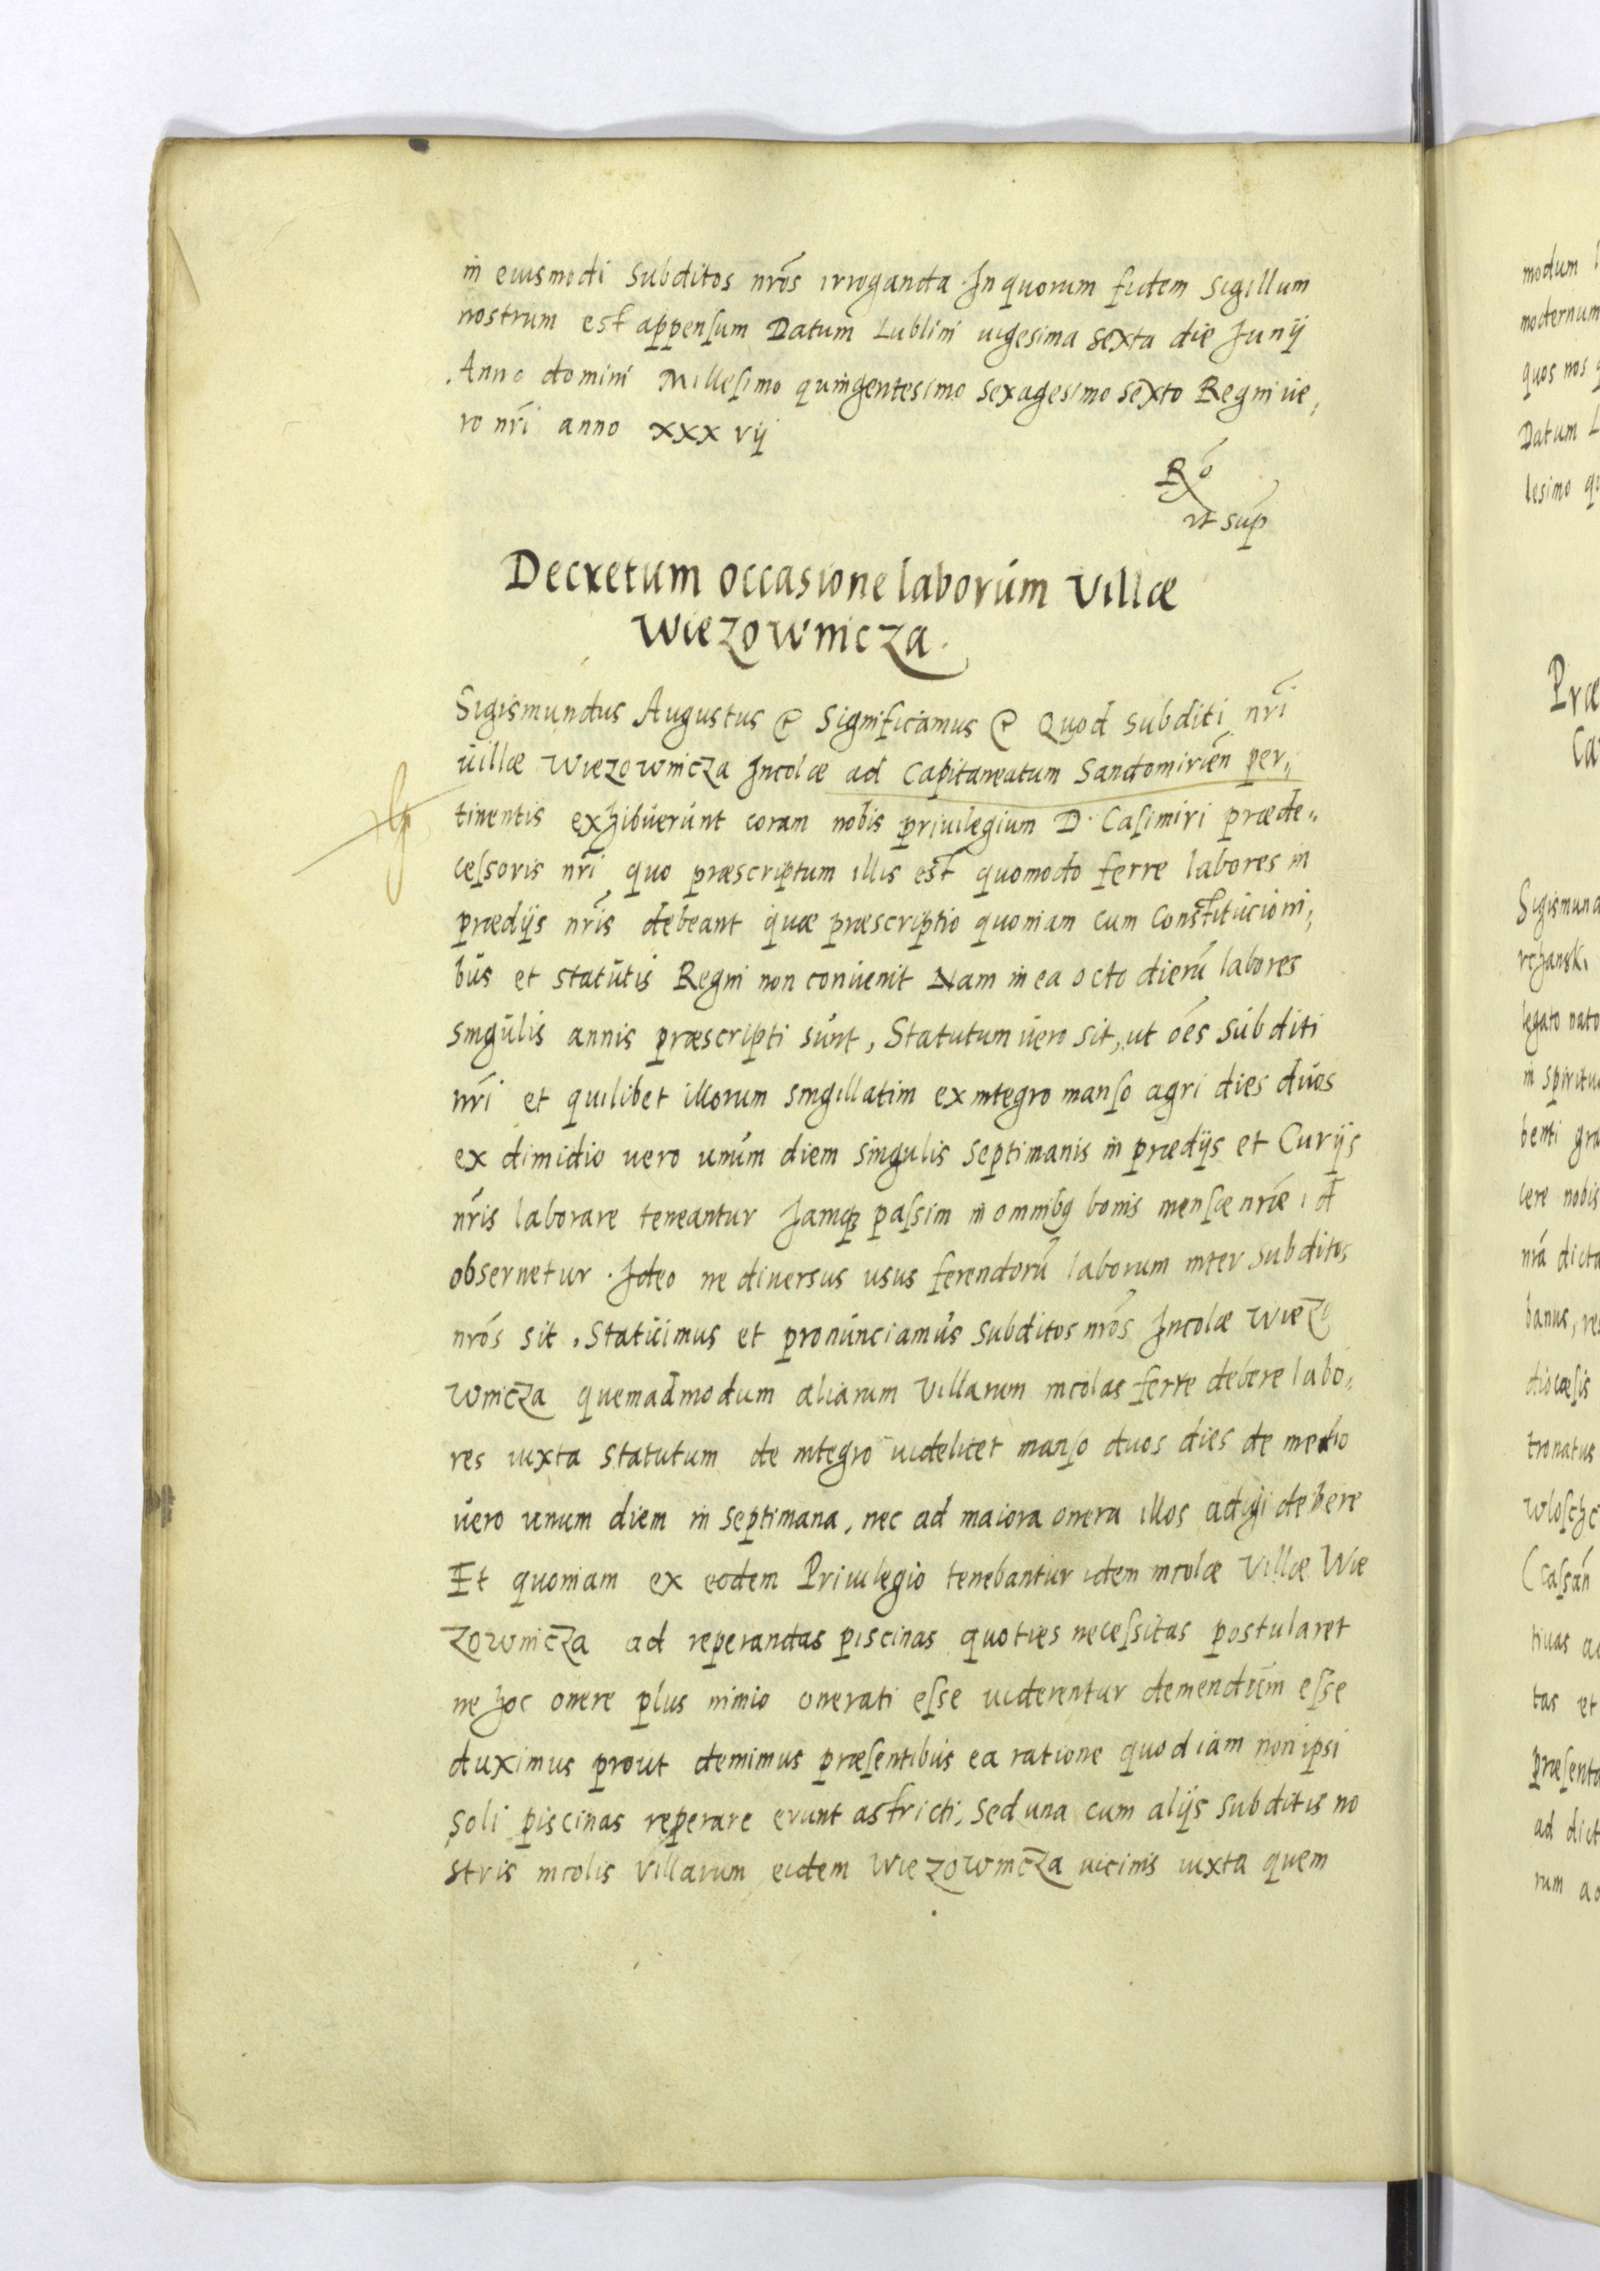 in eiusmodi subditos nros irroganda. In quorum fidem sigillum
nostrum est appensum Datum Lublini uigesima sexta die Junij
Anno domini Millesimo quingentesimo sexagesimo sexto Regni ue,
ro nri anno xxxvij
Ro
ut sup
Decretum occasione laborum Villæ
Wiezownicza.
Sigismundus Augustus & Significamus & Quod subditi nri
uillæ Wiezownicza Incolæ ad Capitaneatum Sandomirien per,
tinentis exhibuerunt coram nobis priuilegium D. Casimiri præde,,
cessoris nri quo præscriptum illis est quomodo ferre labores in
prædijs nris debeant quæ præscriptio quoniam cum Constitucioni,
bus et statutis Regni non conuenit Nam in ea octo dierū labores
singulis annis præscripti sunt, Statutum uero sit, ut oēs subditi
nri et quilibet illorum singillatim ex integro manso agri dies duos
ex dimidio uero unum diem singulis septimanis in prædijs et Curijs
nris laborare teneantur Jamq passim in omnibg bonis mensæ nræ id
obseruetur. Ideo ne diuersus usus ferendorū laborum inter subditos
nros sit, Statuimus et pronunciamus subditos nros Incolæ Wiezo
wnicza quemadmodum aliarum Villarum incolas ferre debere labo,
res iuxta statutum de integro uidelicet manso duos dies de medio
uero unum diem in septimana, nec ad maiora onera illos adigi debere
Et quoniam ex eodem Priuilegio tenebantur idem incolæ Villæ Wie
zownicza ad reperandas piscinas quoties necessitas postularet
ne hoc onere plus nimio onerati esse uiderentur demendum esse
duximus prout demimus præsentibus ea ratione quod iam non ipsi
soli piscinas reperare erunt astricti, sed una cum alijs subditis no
stris incolis Villarum eidem Wiezownicza uicinis iuxta quem
modum
modernum
quos nos
Datum L
lesimo qu
Præ
Ca
Sigismund
legato nato
in spiritu
benti gra
cere nobis
nrā dictu
banus, re
diocæsis
tronatus
tiuas
tas et
præsenta
ad dict
rum ad